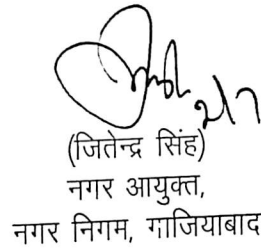 2/7
(जितेन्द्र सिंह)
नगर आयुक्त,
नगर निगम, गाजियाबाद